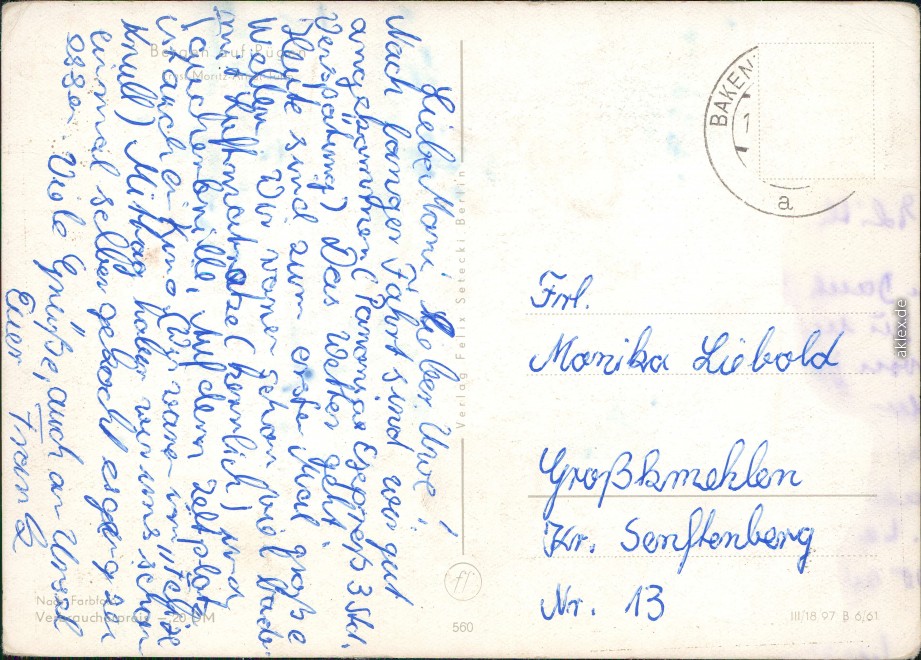 Bergen auf Rügen
Ernst-Moritz-Arndt-Turm
Liebe Moni, lieber Uwe!
Nach langer Fahrt sind wir gut
angekommen (Pannonia Express 3 Std.
Verspätung) Das Wetter geht.
Heute sind zum erste Mal große
Wellen. Wir waren schon viel baden
mit Luftmatratze (herrlich) und
Taucherbrille. Auf dem Zeltplatz
ist auch ein Kino (Wir waren im
Knüll) Mittag haben wir uns schon
einmal selber gekocht
essen Viele Grüße, auch an Ursel
Euer Frank
Verlag Felix Setecki Berlin
BAKEN
a
Frl.
Monika Liebold
Großkmehlen
Kr. Senftenberg
Nr. 13
Nach Farbfoto
Verbraucherpreis –,20 DM
560
III/18 97 B 6/61
aklex.de